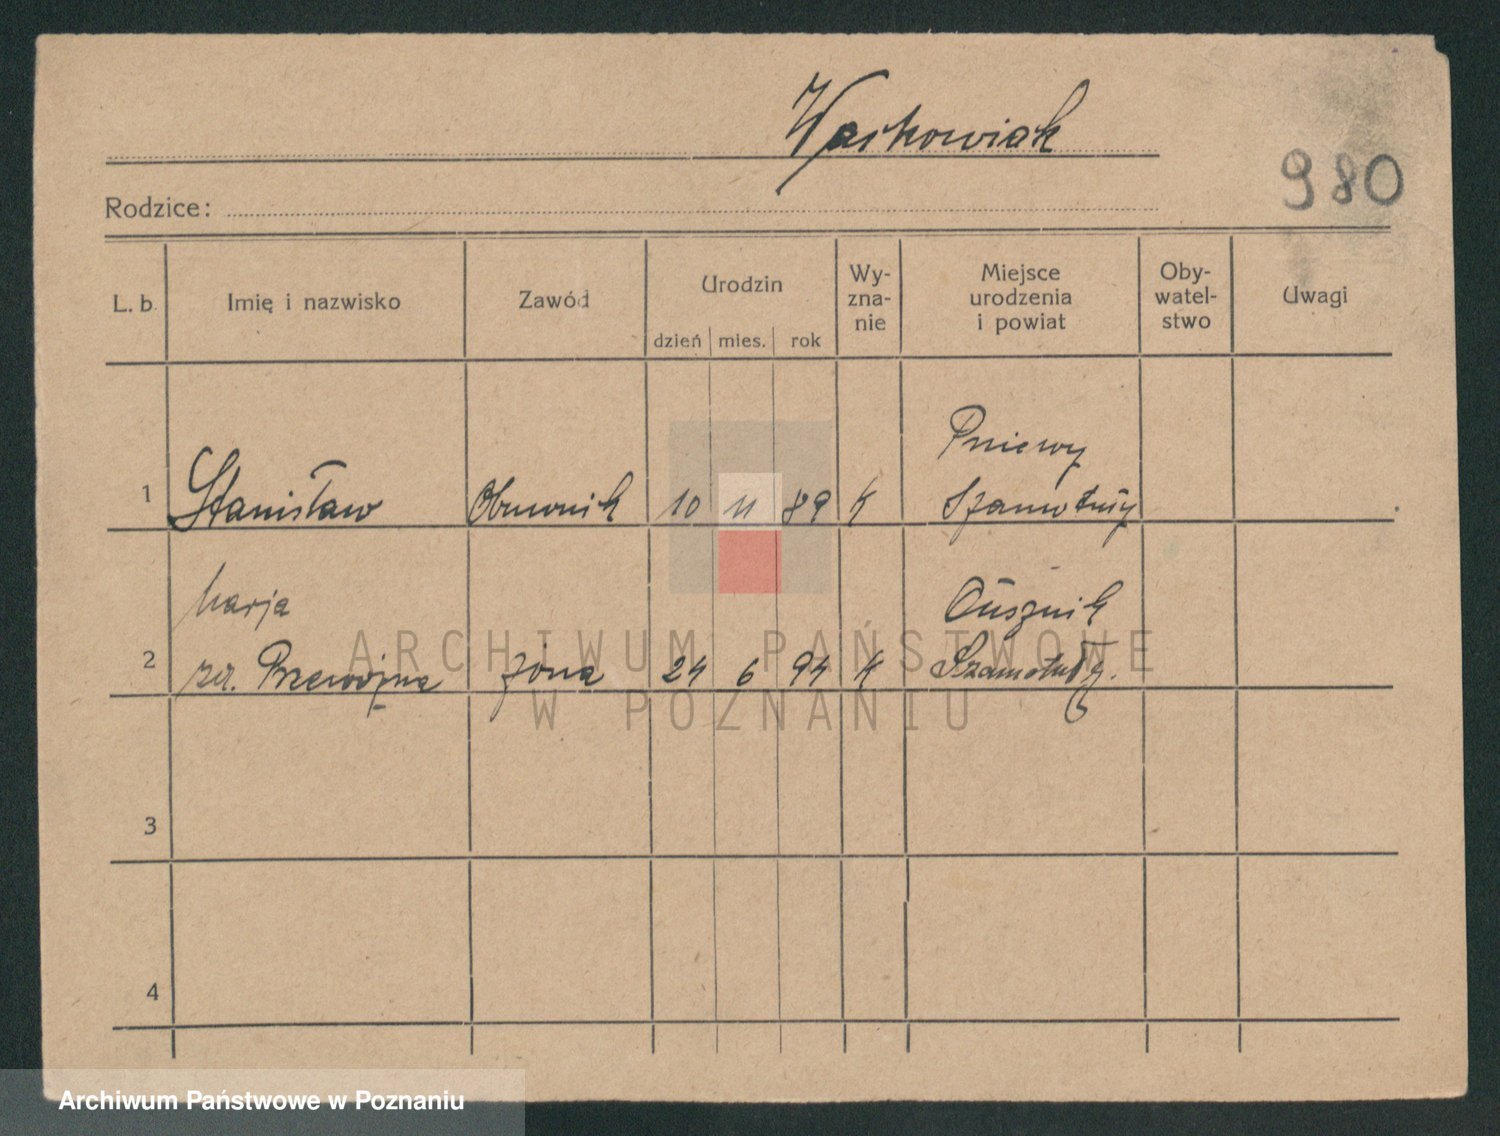 Waskowiak
980
Rodzice:
L. b.
Imię i nazwisko
Zawód
Urodzin
dzień mies. rok
Wy-
zna-
nie
Miejsce
urodzenia
i powiat
Oby-
watel-
stwo
Uwagi
Pniewy
1 Stanisław Obuwnik 10 11 89 K Szamotuły
Marja Ćuśznik
2 zd. Przewoźna żona 24 6 94 K Szamotuły.
3
4
ARCHIWUM PAŃSTWOWE
W POZNANIU
Archiwum Państwowe w Poznaniu